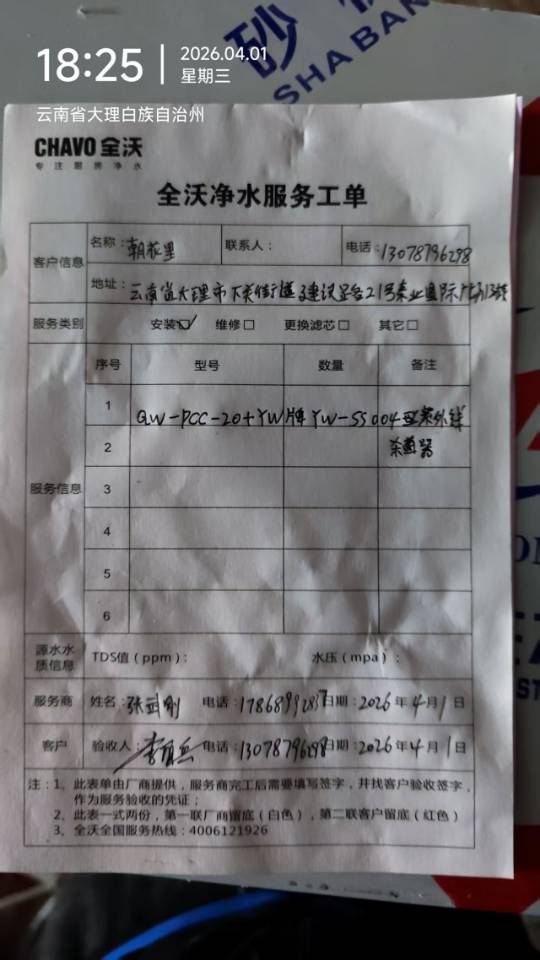 18:25
2026.04.01
星期三
云南省大理白族自治州
砂
SHA BAN
CHAVO 全沃
专注厨房净水
全沃净水服务工单
客户信息
名称：朝花里
联系人：
电话：13078796298
地址：云南省大理市下关街道建设路21号泰业国际广场13
服务类别
安装☑ 维修□ 更换滤芯□ 其它□
服务信息
序号 型号 数量 备注
1 QW-PCC-20+YW牌 YW-SS004型紫外线
2 杀菌器
3
4
5
6
源水水质信息
TDS值（ppm）： 水压（mpa）：
服务商 姓名：张武刚 电话：17868992837 日期：2026年4月1日
客户 验收人： 电话：13078796298 日期：2026年4月1日
注：1、此表单由厂商提供，服务商完工后需要填写签字，并找客户验收签字，
作为服务验收的凭证；
2、此表一式两份，第一联厂商留底（白色），第二联客户留底（红色）
3、全沃全国服务热线：4006121926